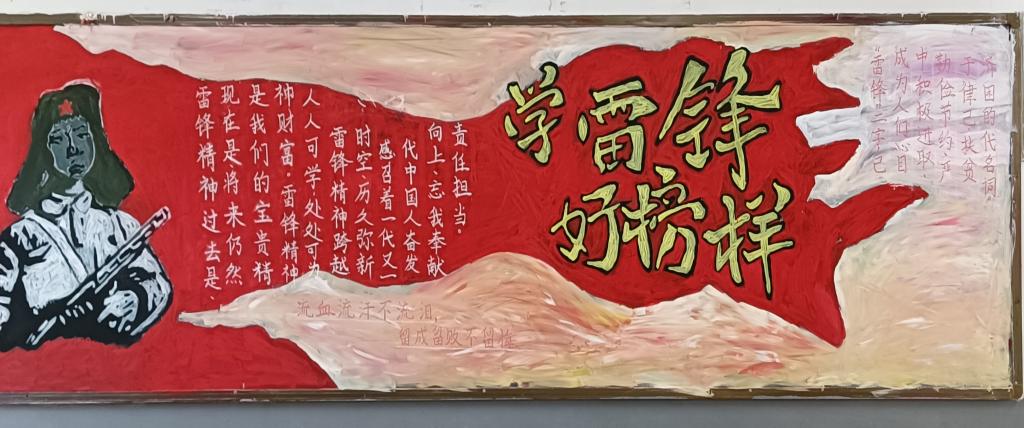 学雷锋
好榜样
雷锋精神过去是、
现在是将来仍然
是我们的宝贵精
神财富。雷锋精神
人人可学处处可为
雷锋精神跨越
时空、历久弥新
感召着一代又一
代中国人奋发
向上、忘我奉献
责任担当。
流血流汗不流泪,
留成留败不留
“雷锋”二字已
成为人们心目
中积极进取、
勤俭节约、严
于律己、扶贫
济困的代名词